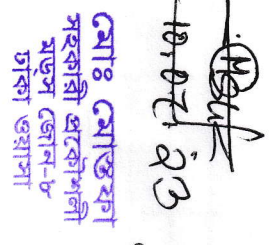 10.07.23
মোঃ মোস্তফা
সহকারী প্রকৌশলী
মড্স জোন-৮
ঢাকা ওয়াসা